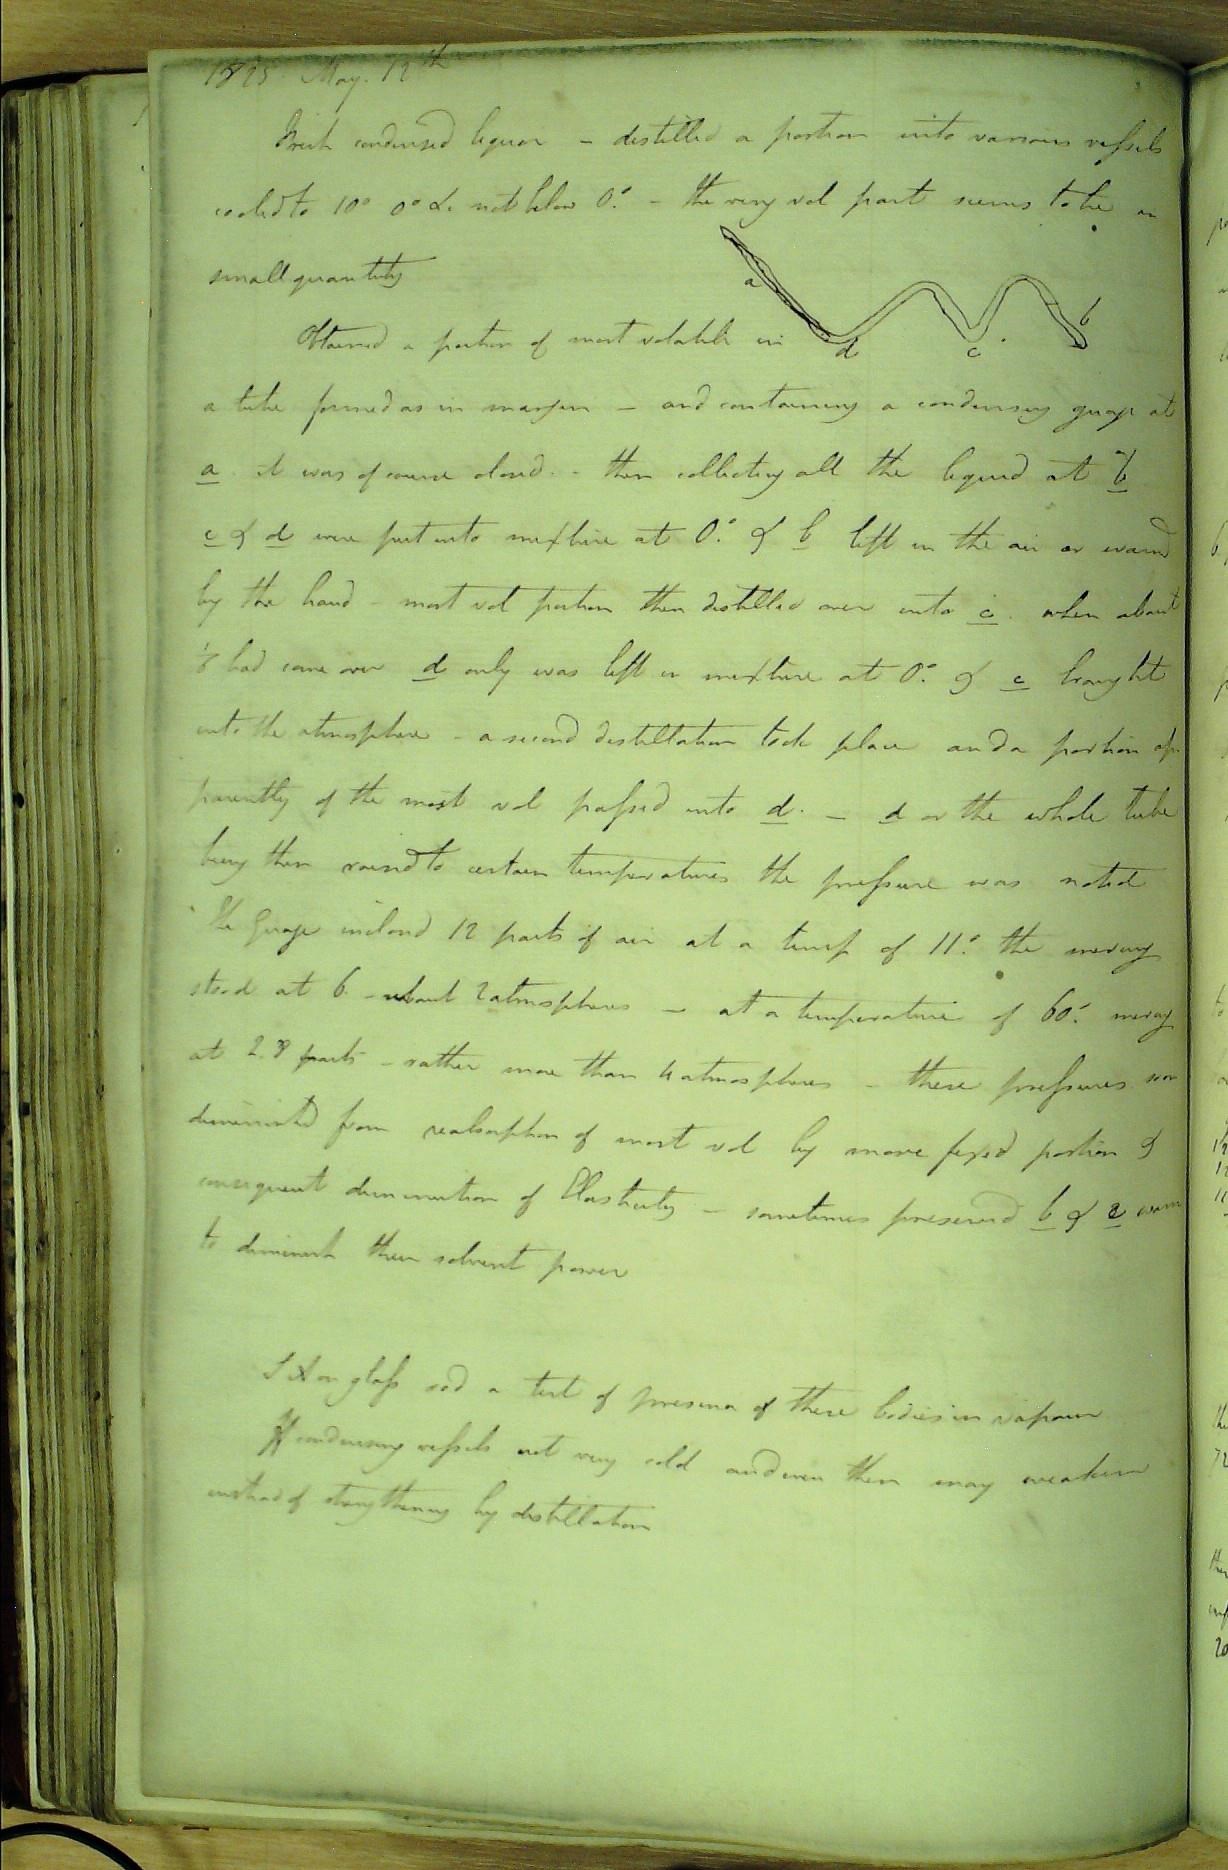 1825 May. 12th
Fresh condensed liquor - distilled a portion into various vessels
cooled to 10° 0° &c not below 0°. - the very vol part seems to be in
small quantity
a
b
Obtained a portion of most volatile in
d
c
a tube formed as in margin - and containing a condensing guage at
a. it was of course closed. - then collecting all the liquid at b
c & d were put into mixture at 0°. & b left in the air or warmd
by the hand - most vol portion then distilled over into c. when about
had come over d only was left in mixture at 0°. & c brought
into the atmosphere - a second distillation took place and a portion ap
parently of the most vol passed into d. - d or the whole tube
being then raised to certain temperatures the pressure was noted
the Guage inclosd 12 parts of air at a temp of 11°. the mercury
stood at 6. - about 2 atmospheres - at a temperature of 60°. mercury
at 2.8 parts - rather more than 4 atmospheres - these pressures soon
diminishd from reabsorption of most vol by more fixed portion &
consequent diminution of Elasticity - sometimes preserved b & c warm
to diminish their solvent power
S A on glass rod a test of presence of these bodies in vapour
If condensing vessels not very cold and even then may weaken
instead of strengthening by distillation